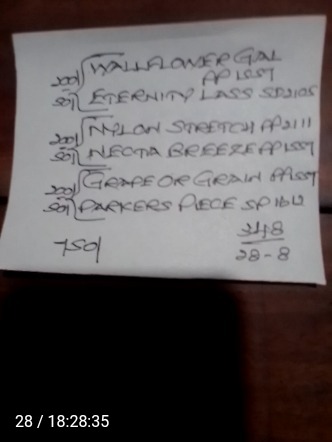 200/ WALLFLOWER GAL
PP1557
50/ ETERNITY LASS SP2105
200/ NYLON STRETCH PP2111
50/ NECTA BREEZE PP1557
200/ GRAPE OR GRAIN PP1557
50/ PARKERS PIECE SP1612
750/
348
28-8
28 / 18:28:35